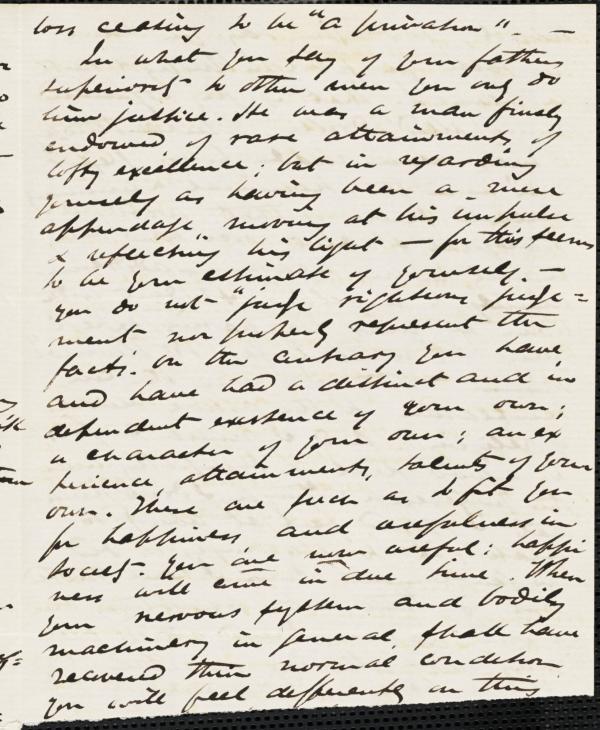 loss ceasing to be "a privation". —
In what you say of your fathers
superiority to other men you only do
him justice. He was a man finely
endowed of rare attainments, of
lofty excellence; but in regarding
yourself as having been a mere
appendage, moving at his impulse
& reflecting his light — for this seems
to be your estimate of yourself, —
you do not "judge righteous judge=
ment nor properly represent the
facts. On the contrary you have
and have had a distinct and in
dependent existence of your own;
a character of your own; an ex
perience, attainments, talents of your
own. These are such as to fit you
for happiness and usefulness in
society. You are now useful: happi
ness will come in due time. When
your nervous system and bodily
machinery in general shall have
recovered their normal condition
you will feel differently on this